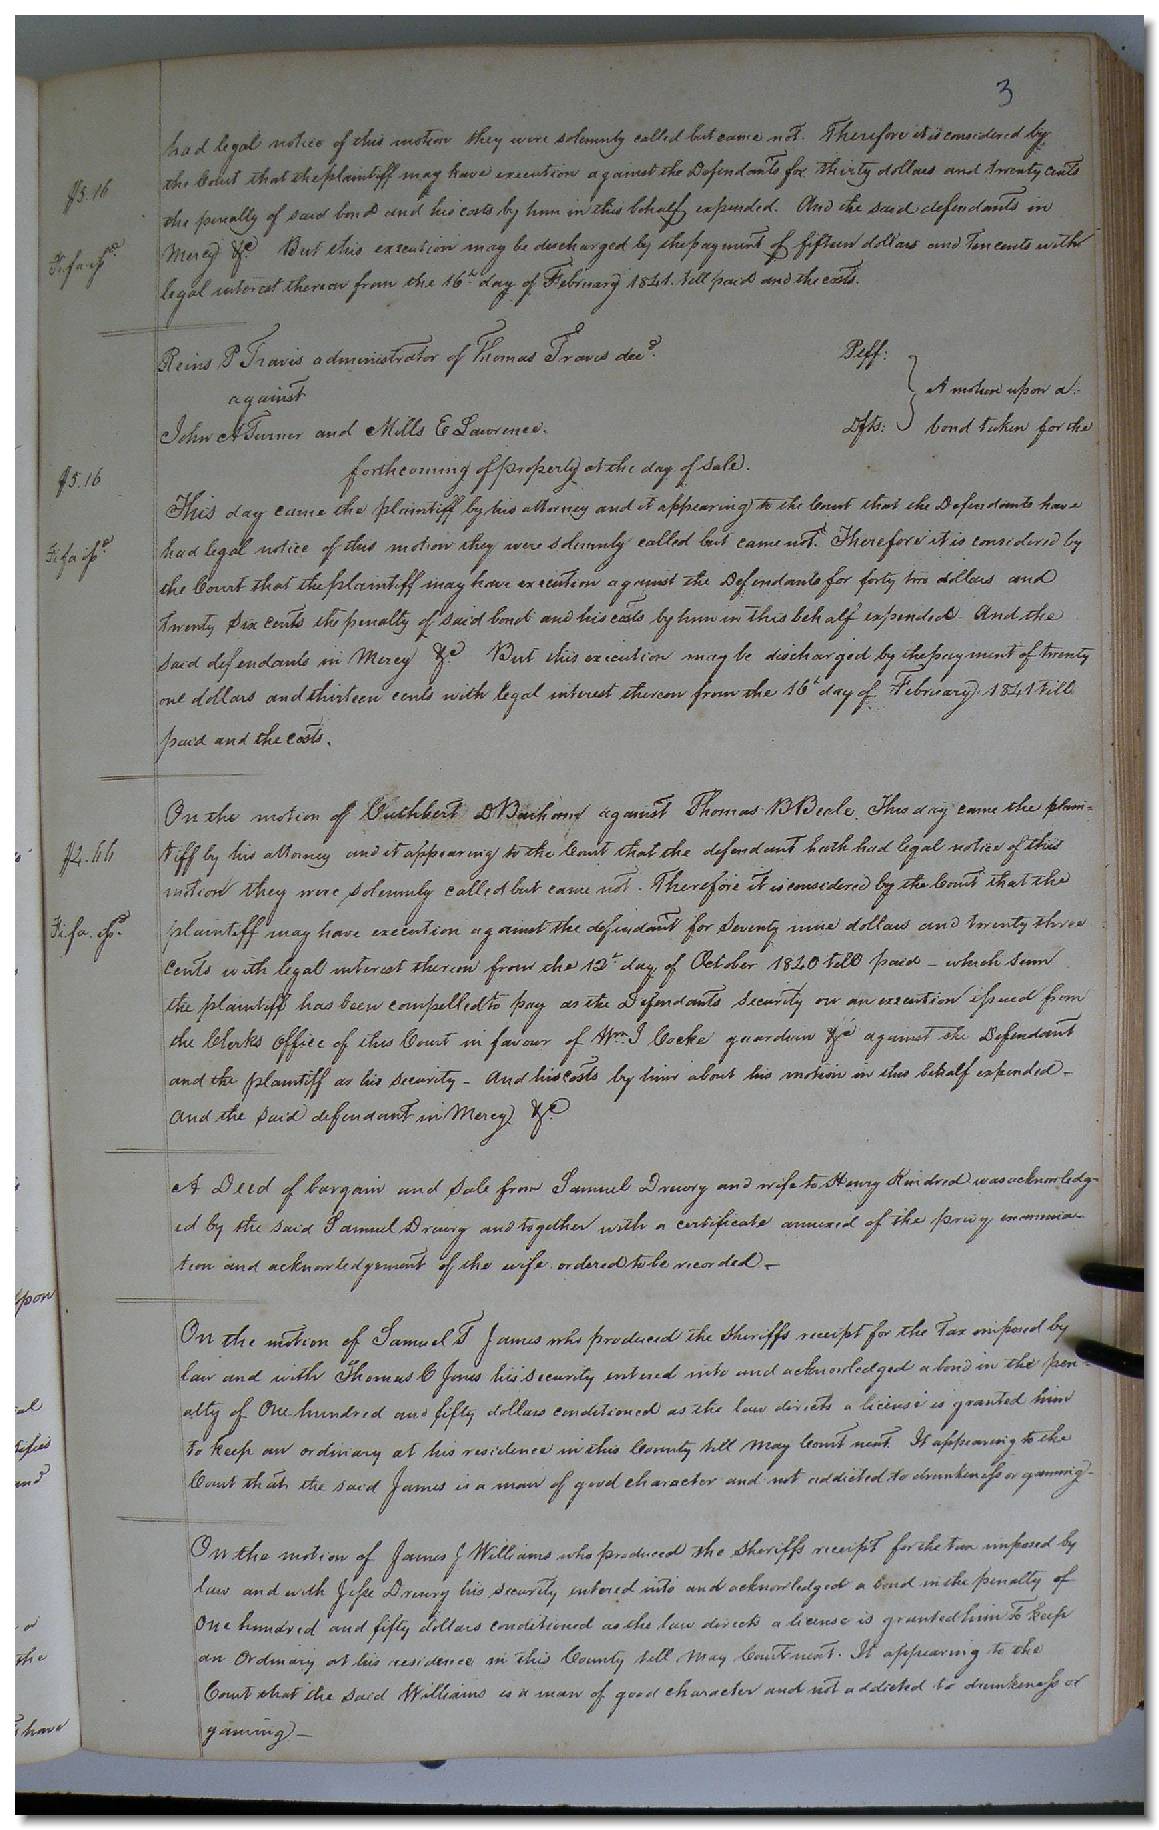 3
had legal notice of this motion they were solemnly called but came not. Therefore it is considered by
the Court that the plaintiff may have execution against the Defendants for thirty dollars and twenty cents
$5.16
the penalty of said bond and his costs by him in this behalf expended. And the said defendants in
Mercy &c. But this execution may be discharged by the payment of fifteen dollars and Ten cents with
Fi fa
legal interest thereon from the 16th day of February 1841. till paid and the costs.
Reins P Travis administrator of Thomas Travis decd. Peff:
against } A motion upon a
John A Turner and Mills E Lawrence. Dfts: bond taken for the
forthcoming of property at the day of sale.
$5.16
This day came the plaintiff by his attorney and it appearing to the Court that the Defendants have
had legal notice of this motion they were solemnly called but came not. Therefore it is considered by
Fi fa
the Court that the plaintiff may have execution against the Defendants for forty two dollars and
twenty Six cents the penalty of said bond and his costs by him in this behalf expended And the
said defendants in Mercy &c. But this execution may be discharged by the payment of twenty
one dollars and thirteen cents with legal interest thereon from the 16th day of February 1841 till
paid and the costs.
On the motion of Cuthbert D against Thomas B Beale. This day came the plain=
$4.66
tiff by his attorney and it appearing to the Court that the defendant hath had legal notice of this
motion they were solemnly called but came not. Therefore it is considered by the Court that the
Fi fa.
plaintiff may have execution against the defendant for Seventy nine dollars and twenty three
cents with legal interest thereon from the 12th day of October 1840 till paid - which sum
the plaintiff has been compelled to pay as the Defendants security on an execution issued from
the Clerks Office of this Court in favour of Wm. J Cocke guardian &c against the Defendant
and the plaintiff as his security - And his costs by him about his motion in this behalf expended -
And the said defendant in Mercy &c
A Deed of bargain and sale from Samuel Drewry and wife to Henry Kindred was acknowledg-
ed by the said Samuel Drewry and together with a certificate annexed of the privy examina-
tion and acknowledgement of the wife ordered to be recorded -
On the motion of Samuel T James who produced the Sheriffs receipt for the Tax imposed by
law and with Thomas C Jones his security entered into and acknowledged a bond in the pen-
alty of One hundred and fifty dollars conditioned as the law directs a license is granted him
to keep an ordinary at his residence in this County till May Court next. It appearing to the
Court that the said James is a man of good character and not addicted to drunkeness or gaming-
On the motion of James J Williams who produced the Sheriffs receipt for the tax imposed by
law and with Jesse Drewry his security entered into and acknowledged a bond in the penalty of
One hundred and fifty dollars conditioned as the law directs a license is granted him to keep
an Ordinary at his residence in this County till May Court next. It appearing to the
Court that the said Williams is a man of good character and not addicted to drunkeness or
gaming -